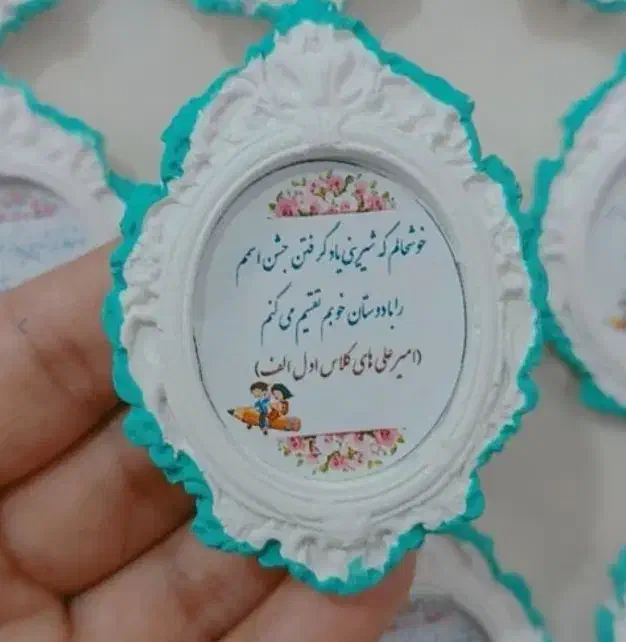 خوشحالم که شیرینی یاد گرفتن جشن اسمم
را با دوستان خوبم تقسیم می کنم
(امیرعلی های کلاس اول الف)